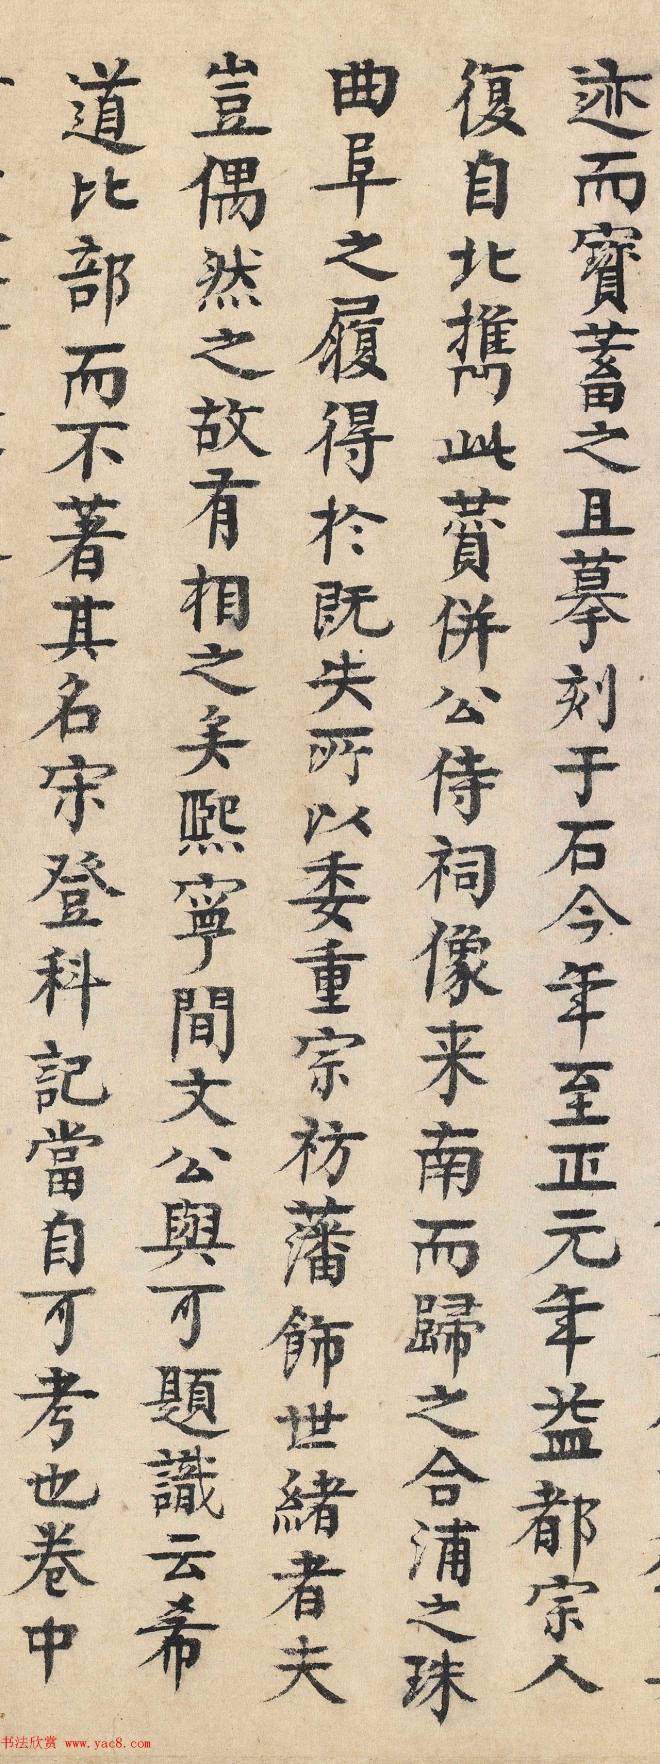 迹而寶蓄之且摹刻于石今年至正元年益都宗人
復自北攜此薲併公侍祠像来南而歸之合浦之珠
曲阜之履得於既失所以委重宗祊藩飾世緒者夫
豈偶然之故有相之矣熙寧間文公與可題識云希
道比部而不著其名宋登科記當自可考也卷中
书法欣赏 www.yac8.com